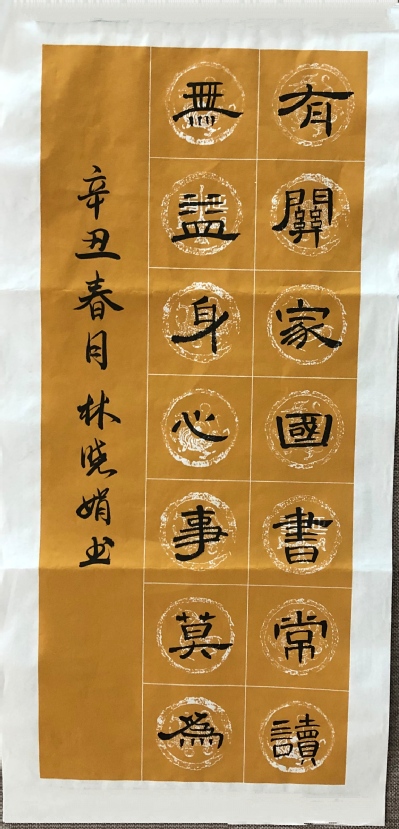 有關家國書常讀
無益身心事莫為
辛丑春月林晓娟书